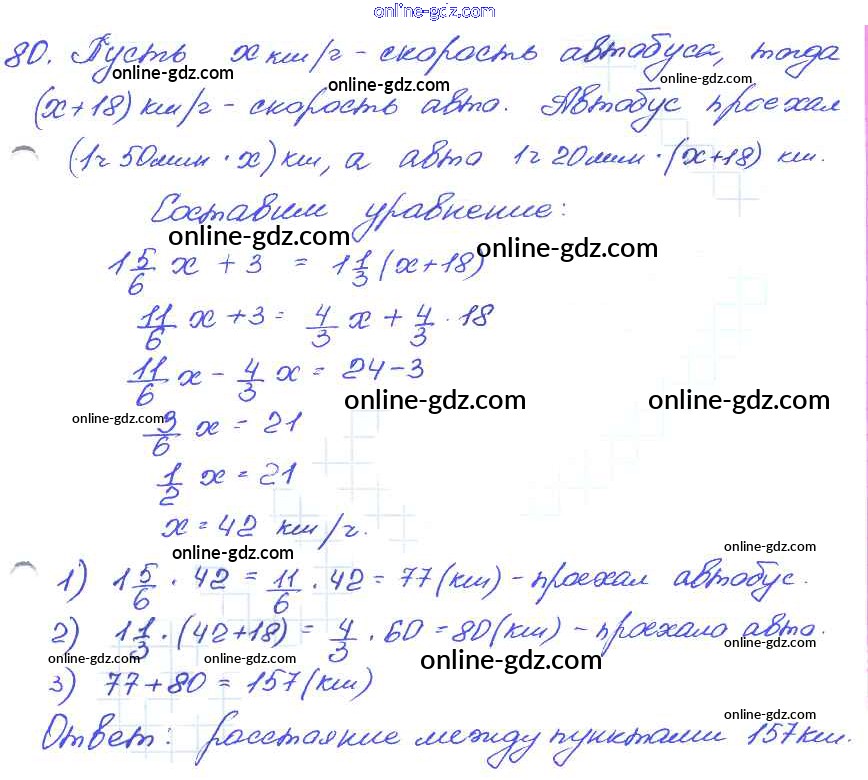 online-gdz.com
80. Пусть x км/ч - скорость автобуса, тогда
online-gdz.com online-gdz.com online-gdz.com
(x+18) км/ч - скорость авто. Автобус проехал
(1ч 50мин · x) км, а авто 1ч 20мин · (x+18) км.
online-gdz.com
Составим уравнение:
online-gdz.com online-gdz.com
1 5/6 x + 3 = 1 1/3 (x+18)
11/6 x + 3 = 4/3 x + 4/3 · 18
11/6 x - 4/3 x = 24 - 3
online-gdz.com online-gdz.com online-gdz.com
3/6 x = 21
1/2 x = 21
x = 42 км/ч.
online-gdz.com online-gdz.com
1) 1 5/6 · 42 = 11/6 · 42 = 77 (км) - проехал автобус.
2) 1 1/3 · (42+18) = 4/3 · 60 = 80 (км) - проехало авто.
online-gdz.com online-gdz.com online-gdz.com online-gdz.com
3) 77 + 80 = 157 (км)
online-gdz.com
Ответ: расстояние между пунктами 157 км.